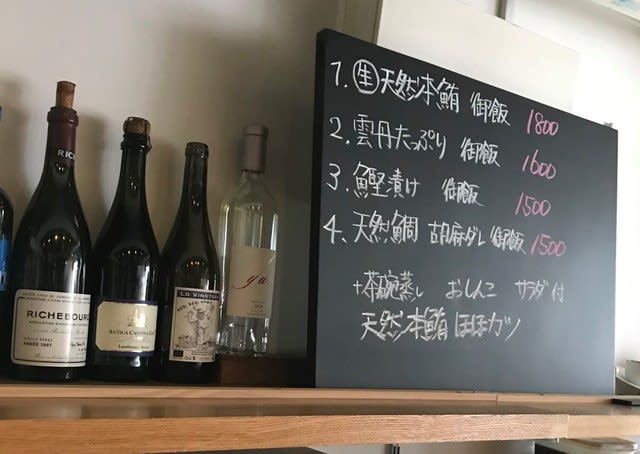 1. 生 天然本鮪 御飯 1800
2. 雲丹たっぷり 御飯 1600
3. 鰹漬け 御飯 1500
4. 天然鯛 胡麻ダレ 御飯 1500
+茶碗蒸し おしんこ サラダ付
天然本鮪ほほカツ
RICHEBOURG
ANNÉE 1997
ANTICA CANTINA
LA VINOTECA